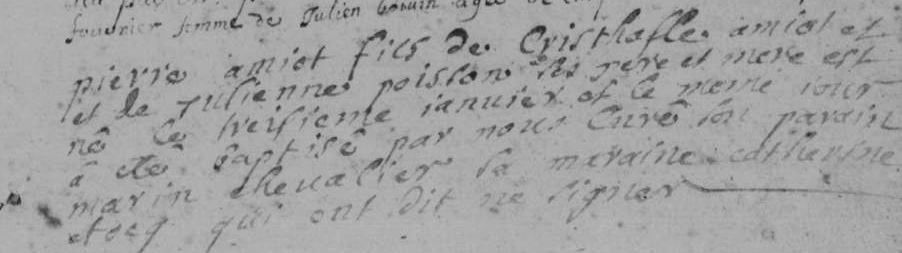 fournier femme de Julien
pierre amiot fils de Cristhofle amiot et
et de Julienne poisson ses pere et mere est
né le treisieme ianuier et le meme iour
â eté baptisé par nous Curé son parain
marin cheualier sa maraine catherine
qui ont dit ne signer